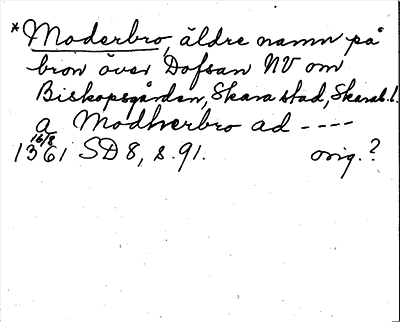 *Moderbro, äldre namn på
bron över Dofsan NV om
Biskopsgården, Skara stad, Skarab. l.
a Modherbro ad ----
16/8
1361 SD 8, s. 91. orig.?